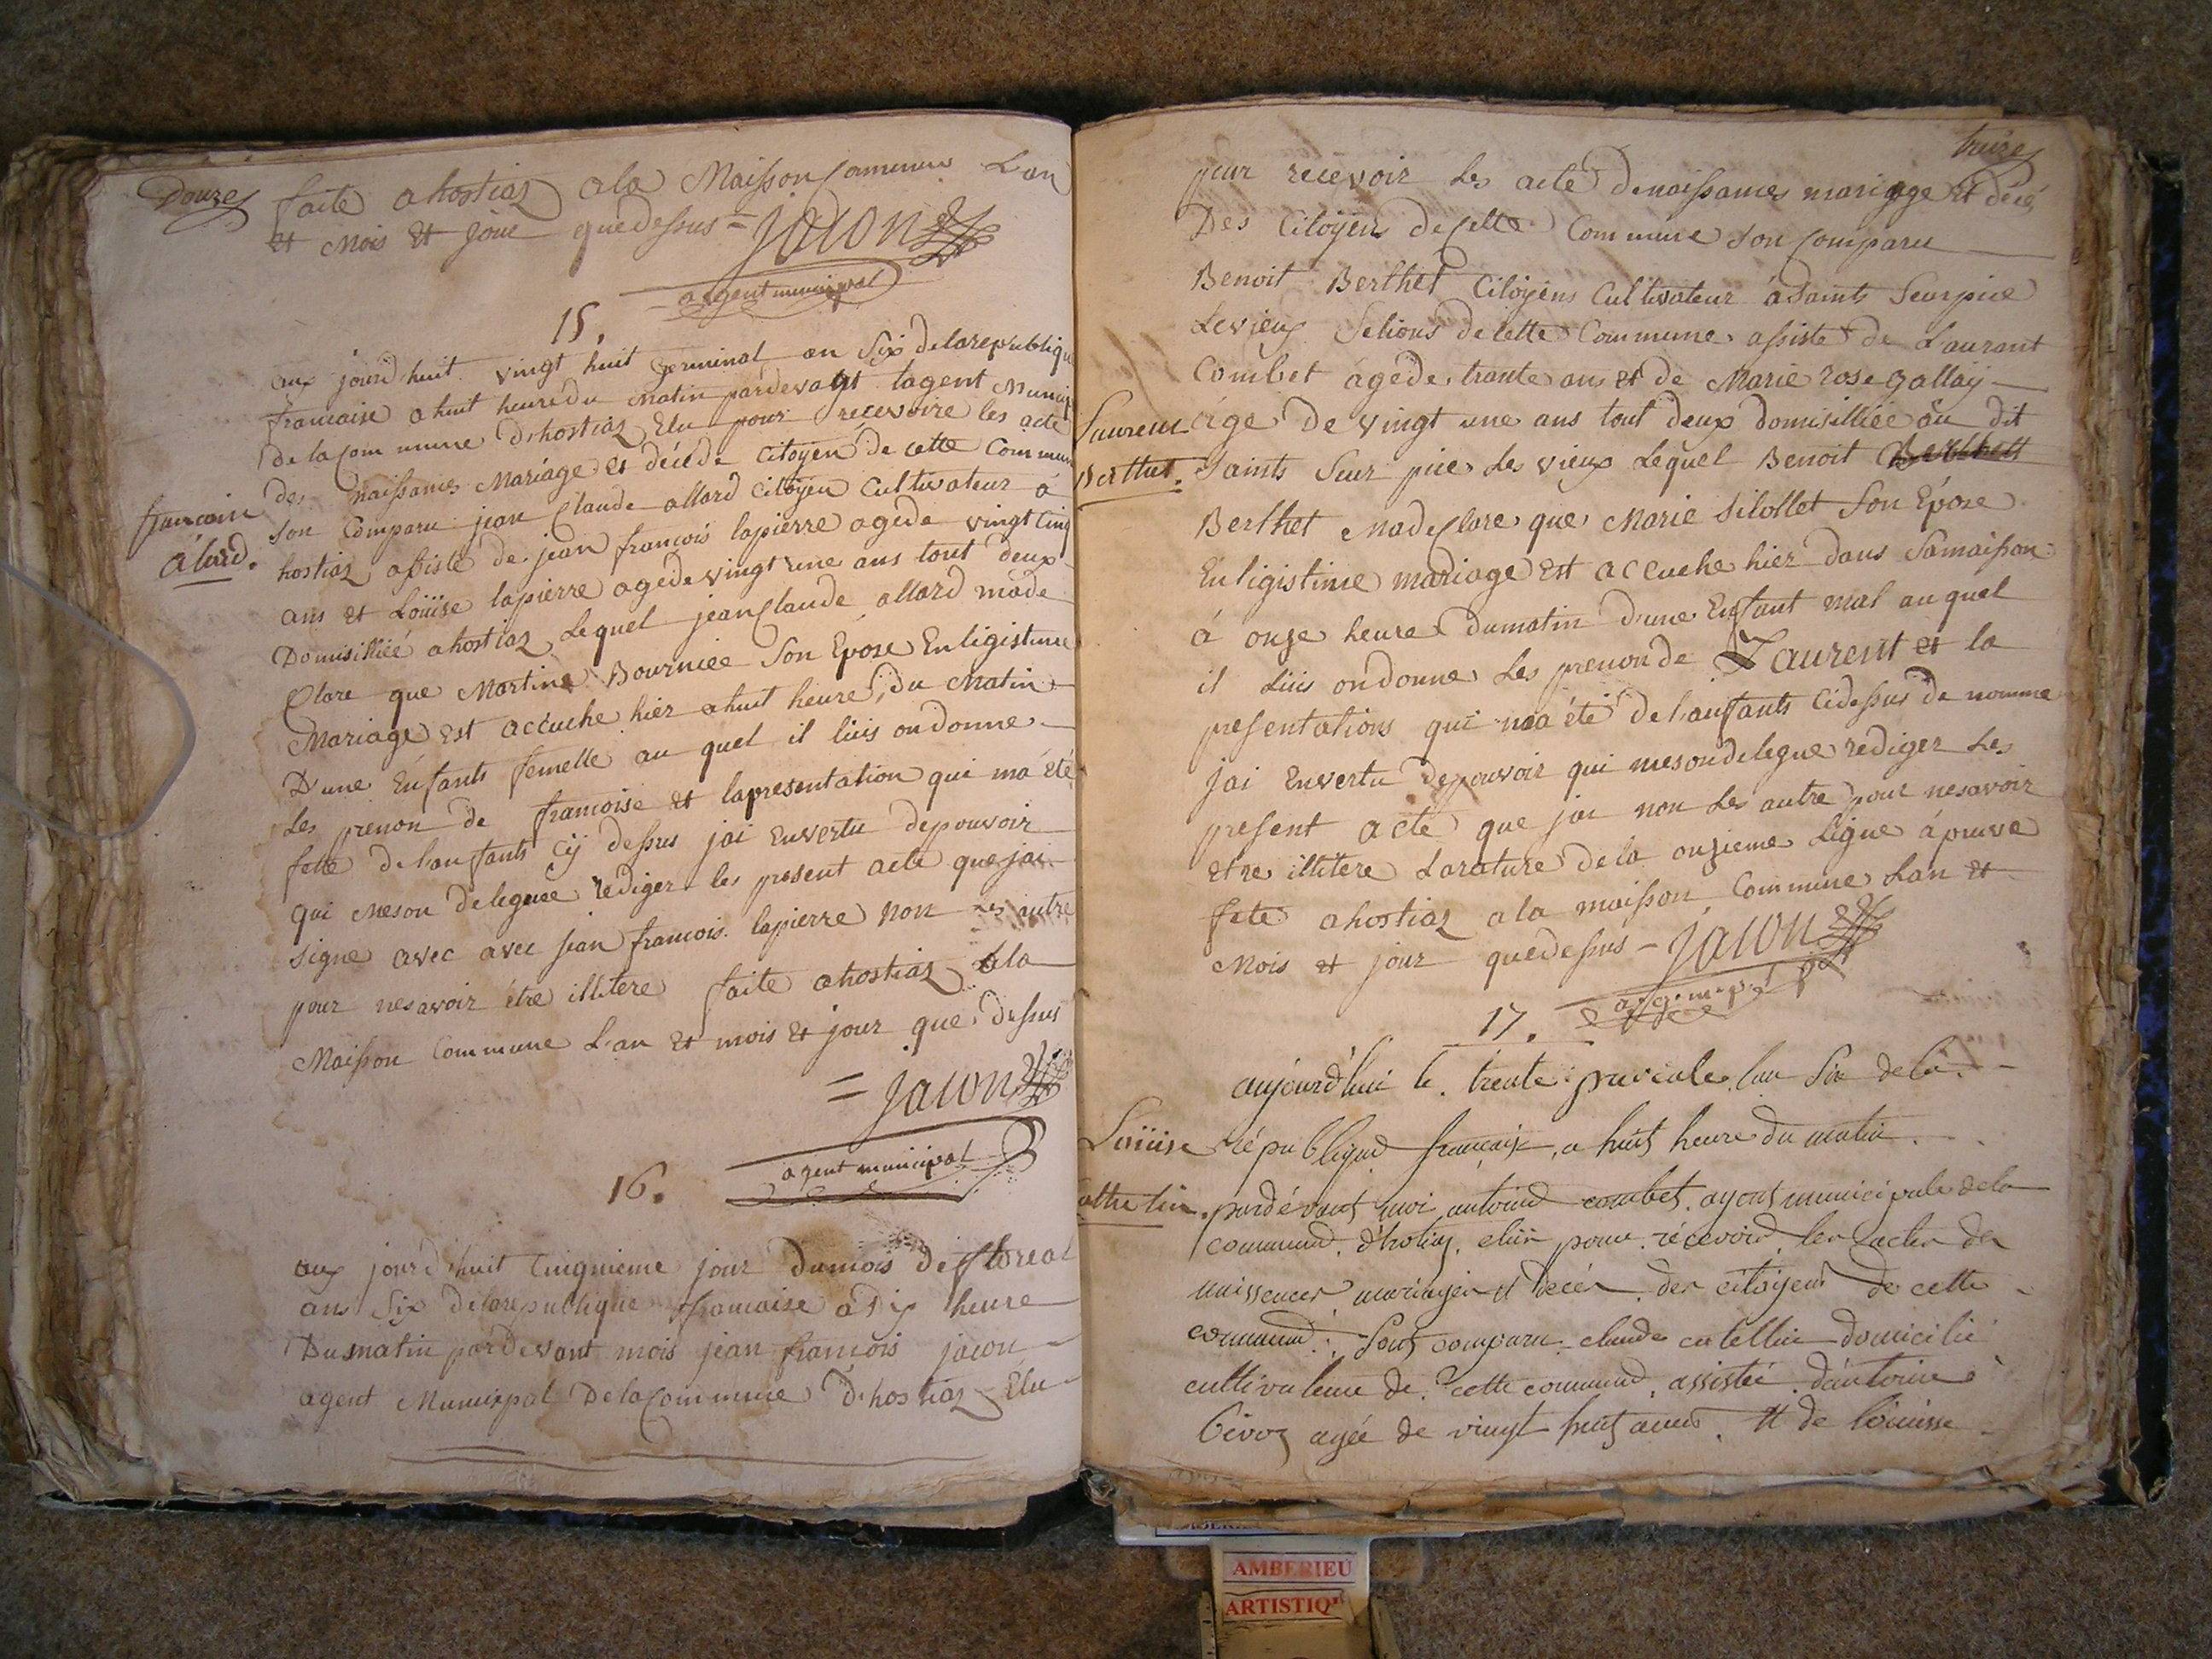 Douze
faite a hostiaz ala Maisson Commune L'an
et Mois et jour quedessus = jacon
agent municipal
15.
aux jourd'huit vingt huit Germinal an Six delarepublique
francaise a huit heure du matin pardevant lagent Municip
de la Commune D'hostiaz Elu pour recevoire les acte
des naissances Mariage et décéde Citoyen de cette Commune
francoise
alard.
son Comparu jean Claude allard Citoyen Cultivateur a
hostiaz assisté de jean francois lapierre agéde vingt Cinq
ans et Loüise lapierre agéde vingt une ans tout deux
Domisilliée a hostiaz Lequel jean Claude allard made
Clare que Martine Bourniée Son Epose En ligistime
Mariage est accuche hier a huit heure du Matin
D'une Enfants femelle au quel il luis on donne
Les prenon de francoise et lapresentation qui ma été
fette del'anfants Cÿ dessus jai Envertu depouvoir
qui meson deleguée rediger les present acte que jai
signe avec avec jean francois lapierre non les autre
pour nesavoir être illitere faite a hostiaz ala
Maisson Commune L'an et mois et jour que dessus
= jacon
agent municipal
16.
aux jourd'huit Cinquieme jour dumois de floreal
an Six delarepublique francaise a dix heure
Dumatin pardevant mois jean francois jacon
agent Municipal De la Commune D'hostiaz Elu
treize
pour recevoir Les acte denaissances mariage et décé
Des Citoyens decette Commune Son Comparu
Benoit Berthet Citoyens Cultivateur a Saints Seurpice
Levieux Setions decette Commune assiste de Laurant
Combet agéde trante ans et de Marie rose gallay
Laurent
Berthet.
age De vingt une ans tout deux domisilliée au dit
Saints Seur pice Les vieux Lequel Benoit Berthett
Berthet madeClare que Marie Silollet Son Epose
En ligistime mariage est accuche hier dans Samaisson
á onze heure dumatin d'une Enfant mal auquel
il Luis ondonne Les prenonde Laurent et la
presentations qui ma été del'anfants Cidessus de nomme
jai Envertu depouvoir qui mesondelegue rediger Les
present acte que jai non Les autre pour nesavoir
etre illitere Larature dela onzieme Ligne áprouve
fete a hostiaz a la maisson Commune Lan et
Mois et jour quedessus = jacon
17.
aujourd'hui le trente preriale lan Six de la
Loüise
Cattelin.
républiqué francaise, a huit heure du matin
pardévant moi antoine combet, agent municipale dela
commune d'hotiaz, eluir pour récevoir les actes des
naissences mariages et decés des citoyens de cette
commune. Sont comparu claude catellin domicilié
cultivateur de cette commune, assistée d'antoine
Civoz agée de vingt huit anné et de loüisse